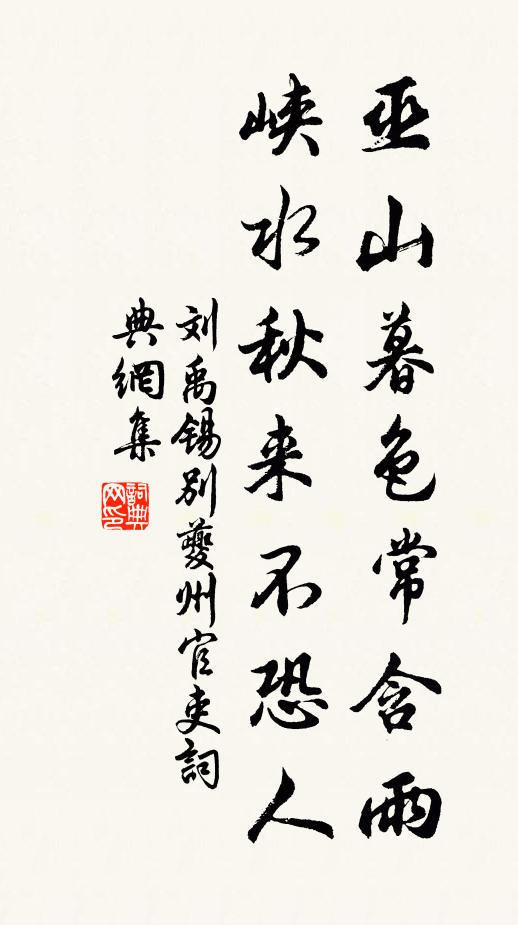 巫山暮色常含雨
峡水秋来不恐人
刘禹锡别夔州官吏詞
典網集
詞典
网印